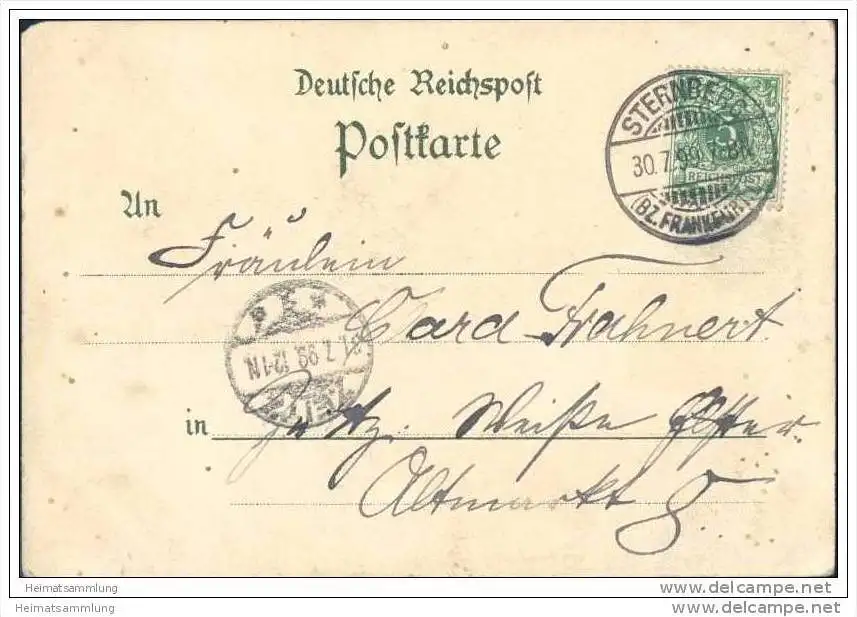 Deutsche Reichspost
Postkarte
STERNBERG
30.7.99.7-8N
(BZ. FRANKFURT
5
REICHSPOST
An
Fräulein
Frahnert
.7.99.12-1N.
in Zeitz. Weiße Elster.
Altmarkt 8.
Heimatsammlung
Heimatsammlung
www.delcampe.net
www.delcampe.net